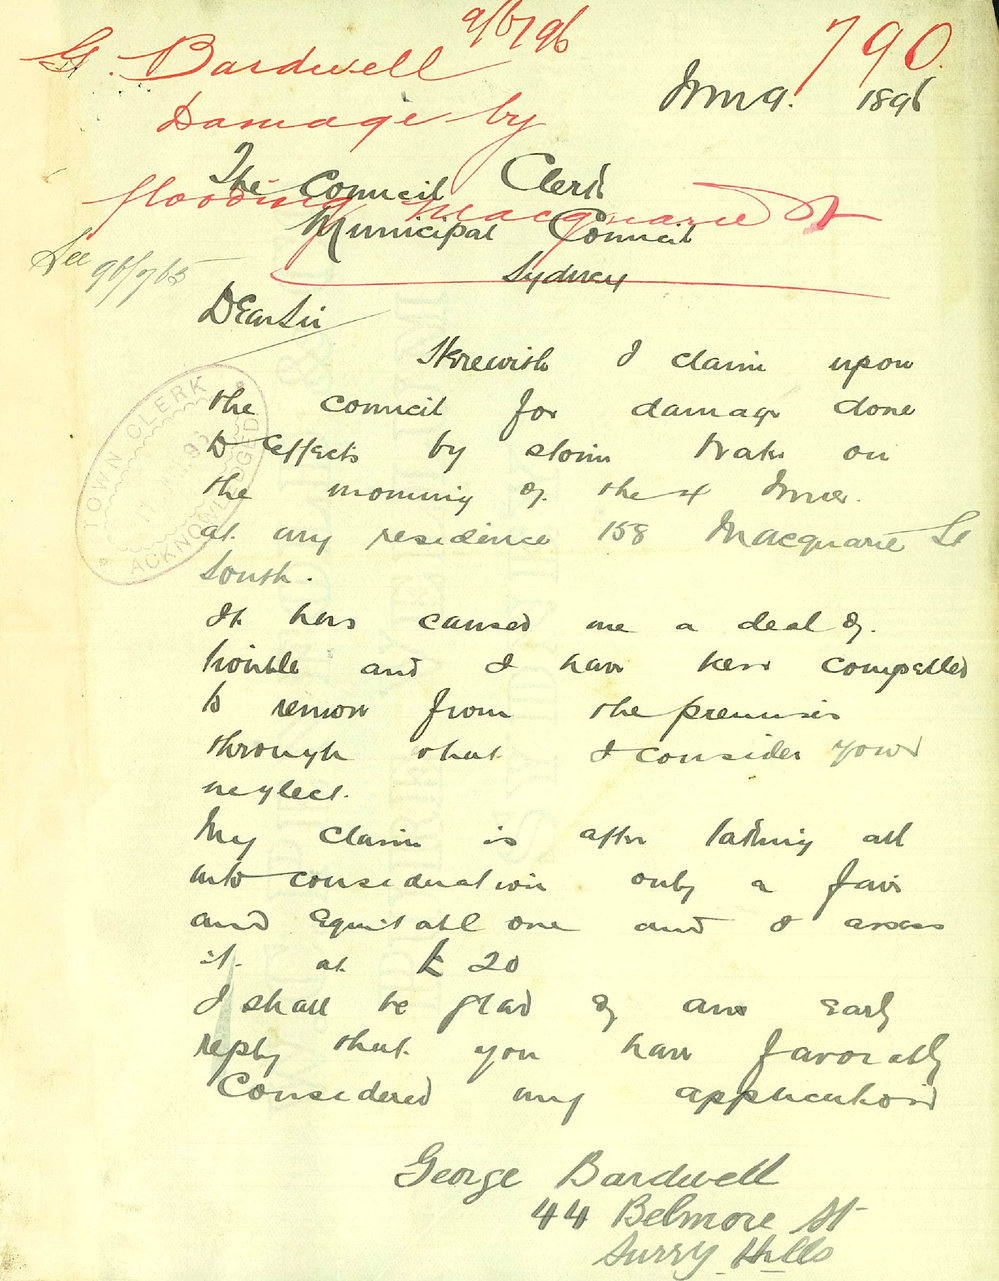 9/6/96
790
G. Bardwell
Damage by
flooding Macquarie St
1896
The Council Clerk
Municipal Council
Sydney
See 96/765
Dear Sir
TOWN CLERK
ACKNOWLEDGED
Herewith I claim upon
the council for damage done
to Effects by storm water on
the morning of the 4
at my residence 158 Macquarie St
South.
It has caused me a deal of
trouble and I have been compelled
to remove from the premises
through what I consider your
neglect.
My claim is after taking all
into consideration only a fair
and Equitable one and I assess
it at £20
I shall be glad of an Early
reply that you have favorably
Considered my application
George Bardwell
44 Belmore St
Surry Hills